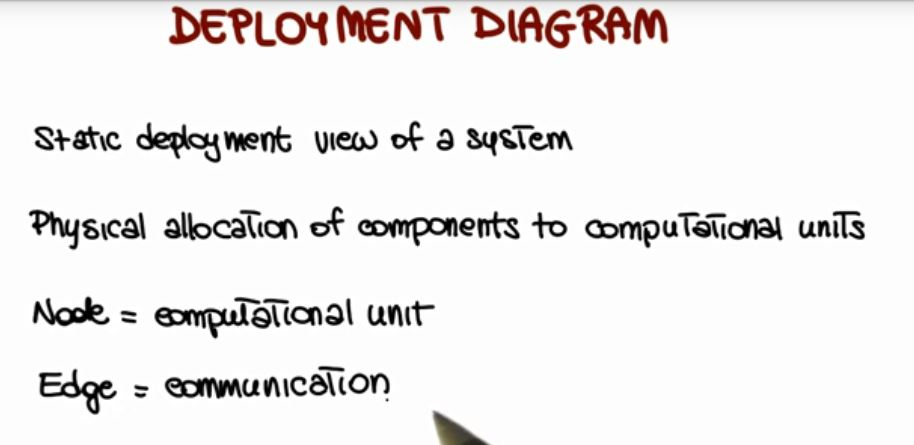 DEPLOYMENT DIAGRAM
Static deployment view of a system
Physical allocation of components to computational units
Node = computational unit
Edge = communication